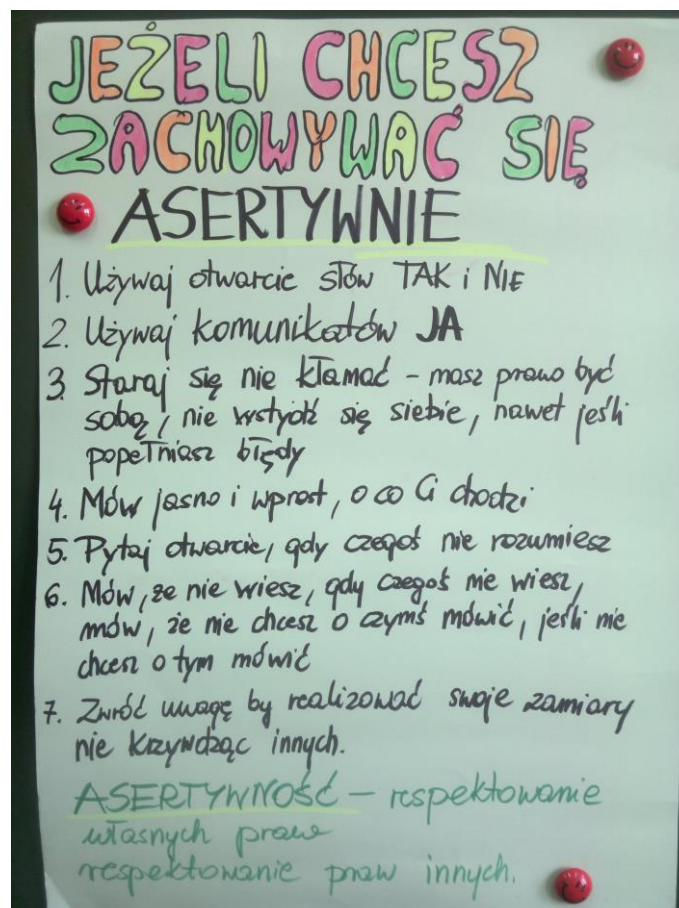 JEŻELI CHCESZ
ZACHOWYWAĆ SIĘ
ASERTYWNIE
1. Używaj otwarcie słów TAK i NIE
2. Używaj komunikatów JA
3. Staraj się nie kłamać – masz prawo być
sobą, nie wstydź się siebie, nawet jeśli
popełniasz błędy
4. Mów jasno i wprost, o co Ci chodzi
5. Pytaj otwarcie, gdy czegoś nie rozumiesz
6. Mów, że nie wiesz, gdy czegoś nie wiesz,
mów, że nie chcesz o czymś mówić, jeśli nie
chcesz o tym mówić
7. Zwróć uwagę by realizować swoje zamiary
nie krzywdząc innych.
ASERTYWNOŚĆ – respektowanie
własnych praw
respektowanie praw innych.